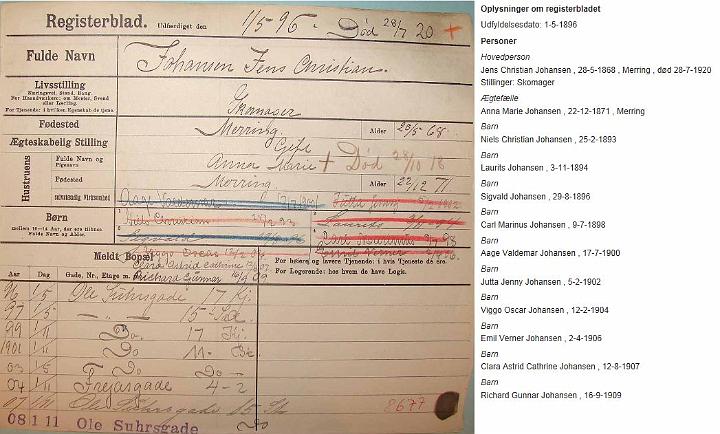 Registerblad. Udfærdiget den 1/5 96. Død 28/7 20 +
Fulde Navn Johansen Jens Christian.
Livsstilling
Næringsvej, Stand, Rang.
Skomager
Fødested Merring. Alder 28/5 68.
Ægteskabelig Stilling Gift
Hustruens
Fulde Navn og
Pigenavn
Anna Marie + Død 28/10 18
Fødested Merring. Alder 22/12 71
selvstændig Virksomhed
Børn
mellem 10-14 Aar, der ere tilmne
Fulde Navn og Alder.
Viggo Oscar 12/2 04
Clara Astrid Cathrine 12/8 07
Richard Gunnar 16/9 09
Meldt Bopæl
For høiere og lavere Tjenende: i hvis Tjeneste de ere.
For Logerende: hos hvem de have Logis.
Aar Dag Gade, Nr., Etage
96 1/5 Ole Suhrsgade 17 Kj.
97 1/5 — „ — 15
99 1/11 Do. 17 Kj.
1901 1/11 Do 11
03 1/5 Do Do
04 1/11 Frejasgade 4 - 2
07 1/11 Ole Suhrsgade 15 St
8677
08 1 11 Ole Suhrsgade Do
Oplysninger om registerbladet
Udfyldelsesdato: 1-5-1896
Personer
Hovedperson
Jens Christian Johansen , 28-5-1868 , Merring , død 28-7-1920
Stillinger: Skomager
Ægtefælle
Anna Marie Johansen , 22-12-1871 , Merring
Barn
Niels Christian Johansen , 25-2-1893
Barn
Laurits Johansen , 3-11-1894
Barn
Sigvald Johansen , 29-8-1896
Barn
Carl Marinus Johansen , 9-7-1898
Barn
Aage Valdemar Johansen , 17-7-1900
Barn
Jutta Jenny Johansen , 5-2-1902
Barn
Viggo Oscar Johansen , 12-2-1904
Barn
Emil Verner Johansen , 2-4-1906
Barn
Clara Astrid Cathrine Johansen , 12-8-1907
Barn
Richard Gunnar Johansen , 16-9-1909